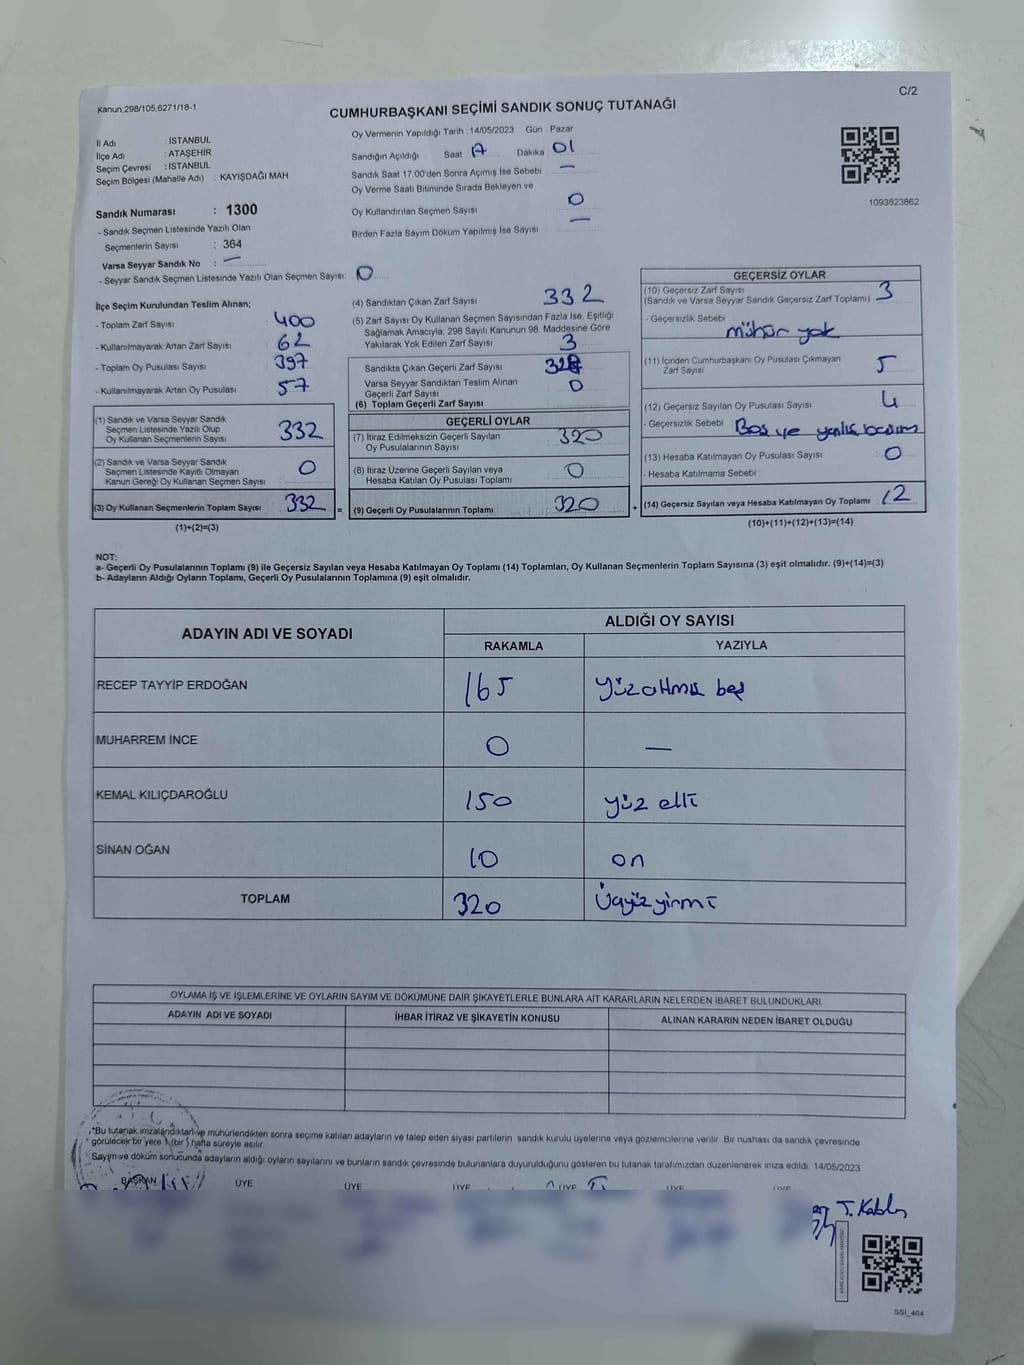 Kanun:298/105;6271/18-1
C/2
CUMHURBAŞKANI SEÇİMİ SANDIK SONUÇ TUTANAĞI
İl Adı : İSTANBUL
İlçe Adı : ATAŞEHİR
Seçim Çevresi : İSTANBUL
Seçim Bölgesi (Mahalle Adı) : KAYIŞDAĞI MAH
Sandık Numarası : 1300
- Sandık Seçmen Listesinde Yazılı Olan
Seçmenlerin Sayısı : 364
Varsa Seyyar Sandık No : —
- Seyyar Sandık Seçmen Listesinde Yazılı Olan Seçmen Sayısı: 0
Oy Vermenin Yapıldığı Tarih : 14/05/2023 Gün : Pazar
Sandığın Açıldığı Saat 17 Dakika 01
Sandık Saat 17:00'den Sonra Açılmış İse Sebebi —
Oy Verme Saati Bitiminde Sırada Bekleyen ve
Oy Kullandırılan Seçmen Sayısı 0
Birden Fazla Sayım Döküm Yapılmış İse Sayısı —
1093823862
İlçe Seçim Kurulundan Teslim Alınan;
- Toplam Zarf Sayısı 400
- Kullanılmayarak Artan Zarf Sayısı 62
- Toplam Oy Pusulası Sayısı 397
- Kullanılmayarak Artan Oy Pusulası 57
(1) Sandık ve Varsa Seyyar Sandık
Seçmen Listesinde Yazılı Olup
Oy Kullanan Seçmenlerin Sayısı 332
(2) Sandık ve Varsa Seyyar Sandık
Seçmen Listesinde Kayıtlı Olmayan
Kanun Gereği Oy Kullanan Seçmen Sayısı 0
(3) Oy Kullanan Seçmenlerin Toplam Sayısı 332
(1)+(2)=(3)
=
(4) Sandıktan Çıkan Zarf Sayısı 332
(5) Zarf Sayısı Oy Kullanan Seçmen Sayısından Fazla İse, Eşitliği
Sağlamak Amacıyla; 298 Sayılı Kanunun 98. Maddesine Göre
Yakılarak Yok Edilen Zarf Sayısı 3
Sandıkta Çıkan Geçerli Zarf Sayısı
Varsa Seyyar Sandıktan Teslim Alınan
Geçerli Zarf Sayısı 0
(6) Toplam Geçerli Zarf Sayısı
GEÇERLİ OYLAR
(7) İtiraz Edilmeksizin Geçerli Sayılan
Oy Pusulalarının Sayısı 320
(8) İtiraz Üzerine Geçerli Sayılan veya
Hesaba Katılan Oy Pusulası Toplamı 0
(9) Geçerli Oy Pusulalarının Toplamı 320
+
GEÇERSİZ OYLAR
(10) Geçersiz Zarf Sayısı
(Sandık ve Varsa Seyyar Sandık Geçersiz Zarf Toplamı) 3
- Geçersizlik Sebebi
mühür yok
(11) İçinden Cumhurbaşkanı Oy Pusulası Çıkmayan
Zarf Sayısı 5
(12) Geçersiz Sayılan Oy Pusulası Sayısı 4
- Geçersizlik Sebebi Boş ve yanlış basım
(13) Hesaba Katılmayan Oy Pusulası Sayısı 0
- Hesaba Katılmama Sebebi
(14) Geçersiz Sayılan veya Hesaba Katılmayan Oy Toplamı 12
(10)+(11)+(12)+(13)=(14)
NOT:
a- Geçerli Oy Pusulalarının Toplamı (9) ile Geçersiz Sayılan veya Hesaba Katılmayan Oy Toplamı (14) Toplamları, Oy Kullanan Seçmenlerin Toplam Sayısına (3) eşit olmalıdır. (9)+(14)=(3)
b- Adayların Aldığı Oyların Toplamı, Geçerli Oy Pusulalarının Toplamına (9) eşit olmalıdır.
ADAYIN ADI VE SOYADI
ALDIĞI OY SAYISI
RAKAMLA YAZIYLA
RECEP TAYYİP ERDOĞAN 165 Yüzaltmış beş
MUHARREM İNCE 0 —
KEMAL KILIÇDAROĞLU 150 yüz elli
SİNAN OĞAN 10 on
TOPLAM 320 Üçyüz yirmi
OYLAMA İŞ VE İŞLEMLERİNE VE OYLARIN SAYIM VE DÖKÜMÜNE DAİR ŞİKAYETLERLE BUNLARA AİT KARARLARIN NELERDEN İBARET BULUNDUKLARI
ADAYIN ADI VE SOYADI İHBAR İTİRAZ VE ŞİKAYETİN KONUSU ALINAN KARARIN NEDEN İBARET OLDUĞU
*Bu tutanak imzalandıktan ve mühürlendikten sonra seçime katılan adayların ve talep eden siyasi partilerin sandık kurulu üyelerine veya gözlemcilerine verilir. Bir nüshası da sandık çevresinde
görülecek bir yere 1 (bir) hafta süreyle asılır.
Sayım ve döküm sonucunda adayların aldığı oyların sayılarını ve bunların sandık çevresinde bulunanlara duyurulduğunu gösteren bu tutanak tarafımızdan düzenlenerek imza edildi. 14/05/2023
BAŞKAN ÜYE ÜYE ÜYE ÜYE ÜYE ÜYE
SSI_404